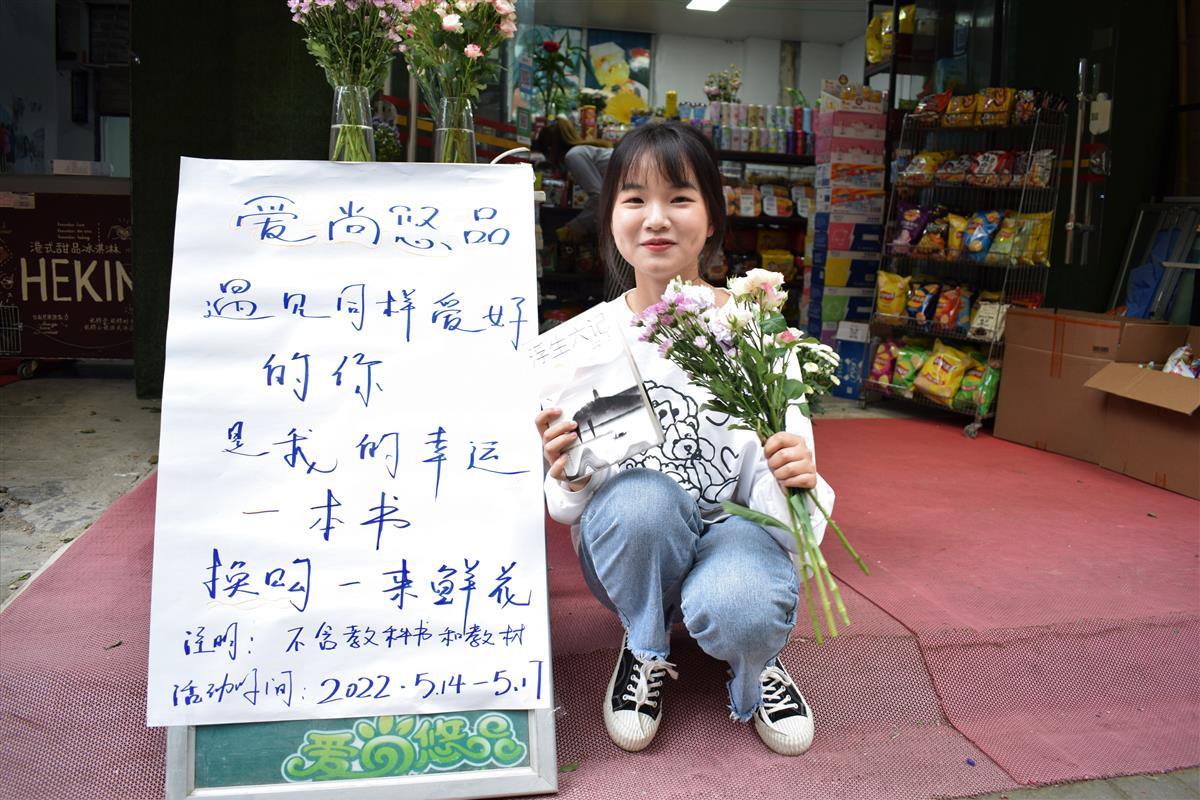 爱尚悠品
遇见同样爱好
的你
是我的幸运
一本书
换购一束鲜花
注明：不含教科书和教材
活动时间：2022.5.14-5.17
爱尚悠品
浮生六记
港式甜品冰淇淋
HEKIN